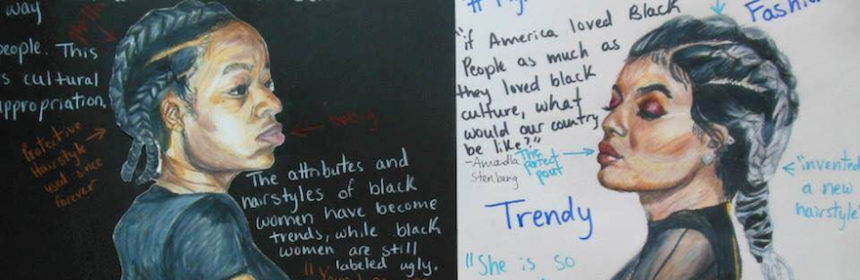 way
people. This
is cultural
appropriation.
Protective
Hairstyle
used since
forever
The attributes and
hairstyles of black
women have become
trends, while black
women are still
labeled ugly.
"if America loved Black
People as much as
they loved black
culture, what
would our country
be like?"
-Amandla
Stenberg
The perfect
pout
Trendy
"She is so
Fashion
"invented
a new
hairstyle"